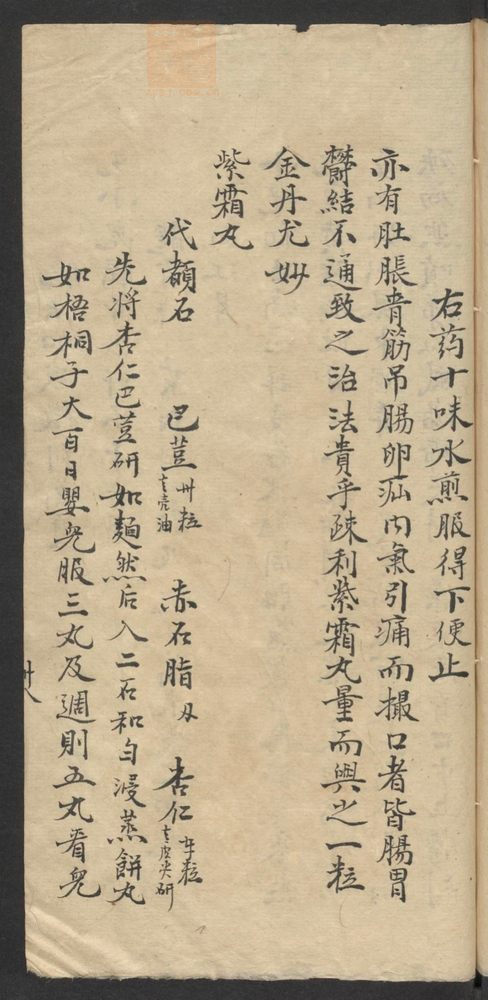 右药十味水煎服得下便止
亦有肚脹青筋吊腸卵疝内氣引痛而撮口者皆腸胃
欝結不通致之治法貴乎疎利紫霜丸量而與之一粒
金丹尤妙
紫霜丸
代赭石 巴荳卅粒去壳油 赤石脂 杏仁粒去皮尖研
先将杏仁巴荳研如麵然后入二石和匀浸蒸餅丸
如梧桐子大百日嬰兒服三丸及週則五丸看兒
卅八